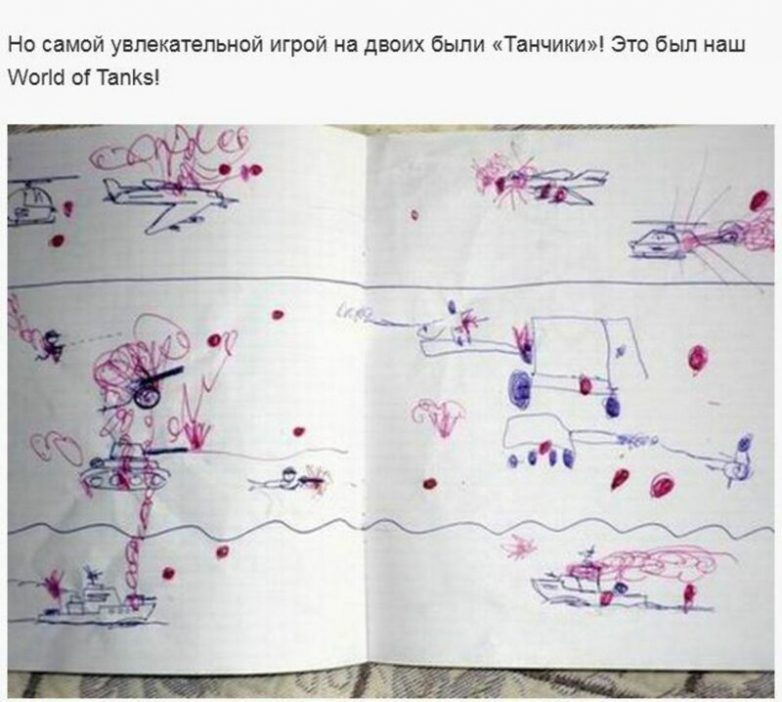 Но самой увлекательной игрой на двоих были «Танчики»! Это был наш
World of Tanks!